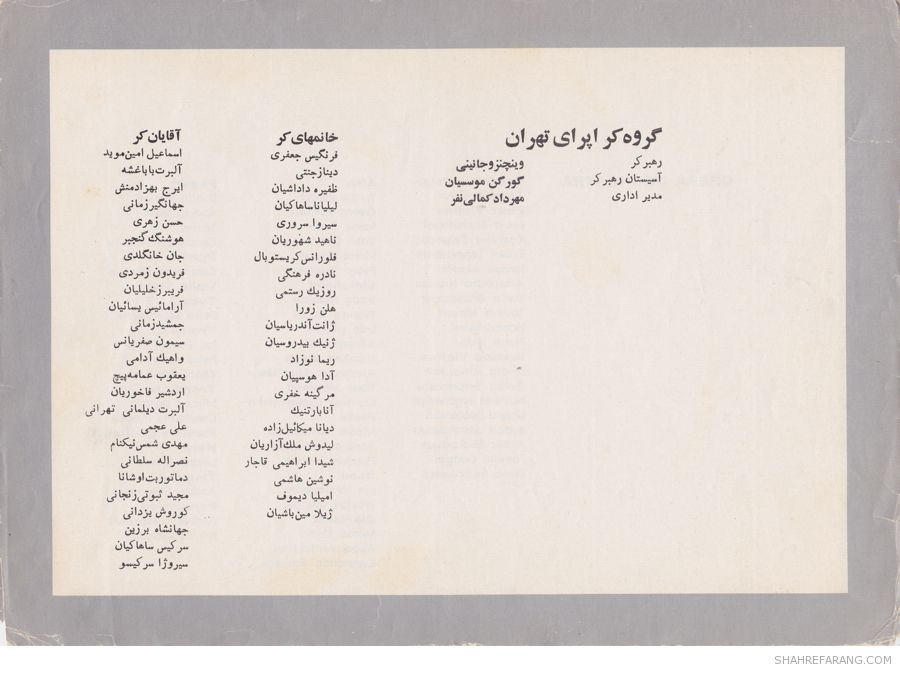 گروه کر اپرای تهران
رهبر کر وینچنزو جانینی
آسیستان رهبر کر گورگن موسسیان
مدیر اداری مهرداد کمالی نفر
خانمهای کر
فرنگیس جعفری
دیناز جنتی
ظفیره داداشیان
لیلیانا ساهاکیان
سیروا سروری
ناهید شهوریان
فلورانس کریستوبال
نادره فرهنگی
روزیك رستمی
هلن زورا
ژانت آندریاسیان
ژنیك بیدروسیان
ریما نوزاد
آدا هوسپیان
مرگینه خفری
آنا بارتنیك
دیانا میکائیل زاده
لیدوش ملك آزاریان
شیدا ابراهیمی قاجار
نوشین هاشمی
امیلیا دیموف
ژیلا مین باشیان
آقایان کر
اسماعیل امین موید
آلبرت باباغشه
ایرج بهزادمنش
جهانگیر زمانی
حسن زهری
هوشنگ گنجبر
جان خانگلدی
فریدون زمردی
فریبرز خلیلیان
آرامائیس یسائیان
جمشید زمانی
سیمون صفریانس
واهیك آدامی
یعقوب عمامه پیچ
اردشیر فاخوریان
آلبرت دیلمانی تهرانی
علی عجمی
مهدی شمس نیکنام
نصراله سلطانی
دماتوربت اوشانا
مجید ثبوتی زنجانی
کوروش یزدانی
جهانشاه برزین
سرکیس ساهاکیان
سیروژا سرکیسو
SHAHREFARANG.COM